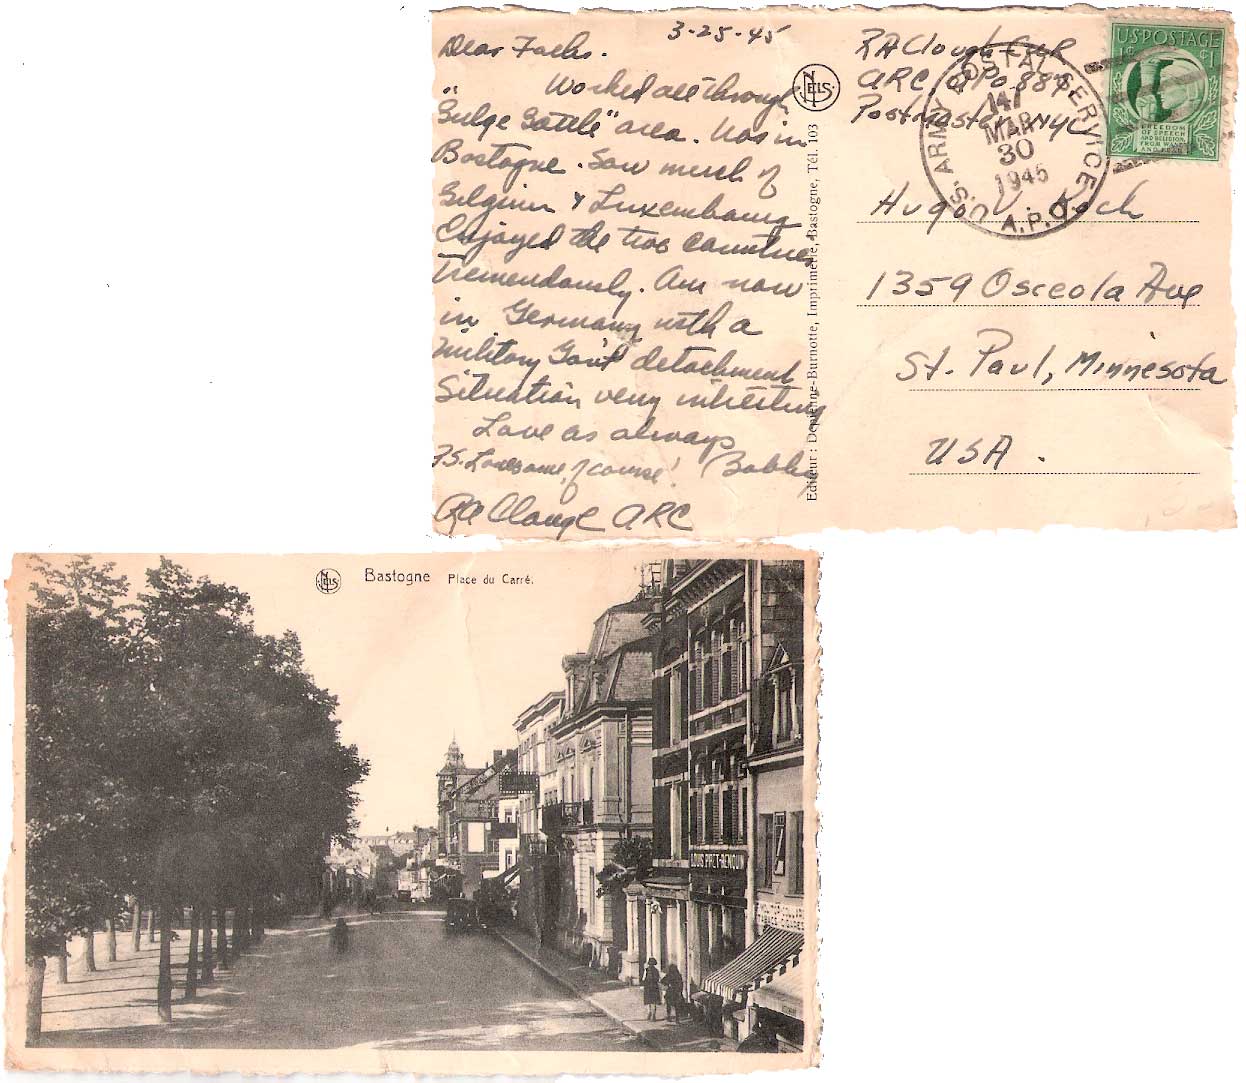 3-25-45
Dear Folks.
Worked all through
"Bulge Battle" area. Was in
Bastogne. Saw much of
Belgium & Luxembourg
Enjoyed the two countries
tremendously. Am now
in Germany with a
Military Gov't detachment
Situation very interesting
Love as always
P.S. Lonesome, of course! Bobby
RA Clough ARC
NELS
Editeur : Depienne-Burnotte, Imprimerie, Bastogne, Tél. 103
RA Clough
ARC, APO 887
Postmaster NYC
U.S. ARMY POSTAL SERVICE A.P.O.
MAR
30
1945
U.S. POSTAGE
1¢ ¢1
FREEDOM
OF SPEECH
AND RELIGION,
FROM WANT
AND FEAR
Hugo V. Koch
1359 Osceola Ave
St. Paul, Minnesota
USA.
NELS
Bastogne Place du Carré.
LOUIS PIRET-RENQUIN